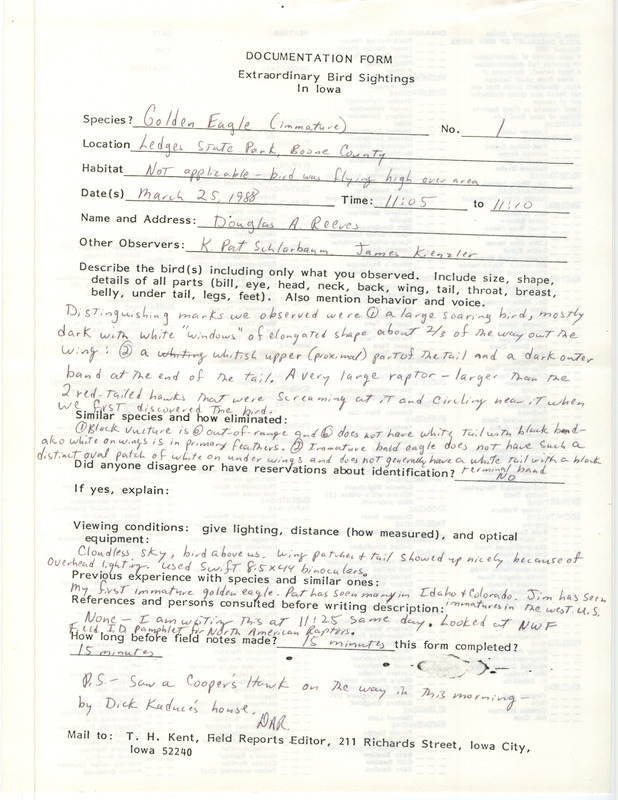 DOCUMENTATION FORM
Extraordinary Bird Sightings
In Iowa
Species? Golden Eagle (immature) No. 1
Location Ledges State Park, Boone County
Habitat Not applicable - bird was flying high over area
Date(s) March 25, 1988 Time: 11:05 to 11:10
Name and Address: Douglas A. Reeves
Other Observers: K. Pat Schlarbaum James Kienzler
Describe the bird(s) including only what you observed. Include size, shape,
details of all parts (bill, eye, head, neck, back, wing, tail, throat, breast,
belly, under tail, legs, feet). Also mention behavior and voice.
Distinguishing marks we observed were ① a large soaring bird, mostly
dark with white "windows" of elongated shape about 2/3 of the way out the
wing: ② a whiting whitish upper (proximal) part of the tail and a dark outer
band at the end of the tail. A very large raptor - larger than the
2 red-tailed hawks that were screaming at it and circling near it when
we first discovered the bird.
Similar species and how eliminated:
① Black vulture is ⓐ out-of-range and ⓑ does not have white tail with black band -
also white on wings is in primary feathers. ② Immature bald eagle does not have such a
distinct oval patch of white on under wings and does not generally have a white tail with a black
terminal band
Did anyone disagree or have reservations about identification? NO
If yes, explain:
Viewing conditions: give lighting, distance (how measured), and optical
equipment:
Cloudless sky, bird above us. Wing patches & tail showed up nicely because of
overhead lighting. used Swift 8.5x44 binoculars.
Previous experience with species and similar ones:
My first immature golden eagle. Pat has seen many in Idaho & Colorado. Jim has seen
immatures in the west U.S.
References and persons consulted before writing description:
None - I am writing this at 11:25 same day. Looked at NWF
Field I.D. Pamphlet for North American Raptors.
How long before field notes made? 15 minutes this form completed?
15 minutes
P.S. - Saw a Cooper's Hawk on the way in this morning -
by Dick Kaduce's house.
DAR
Mail to: T. H. Kent, Field Reports Editor, 211 Richards Street, Iowa City,
Iowa 52240